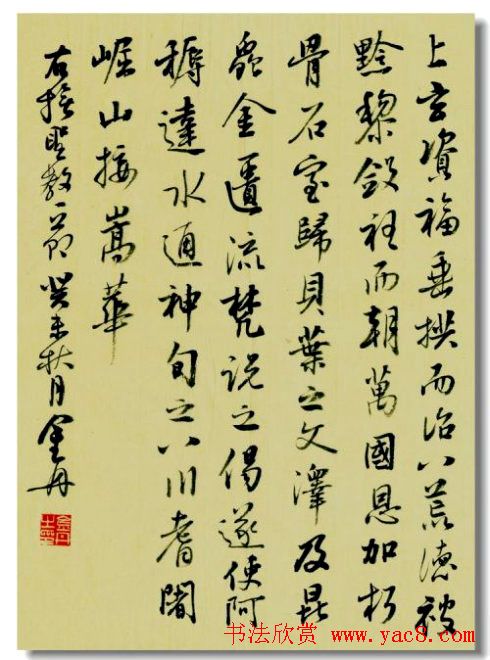 上玄資福垂拱而治八荒德被
黔黎斂衽而朝萬國恩加朽
骨石室歸貝葉之文澤及昆
蟲金匱流梵說之偈遂使阿
耨達水通神甸之八川耆闍
崛山接嵩華
右 聖教一節癸未秋月金丹
书法欣赏 www.yac8.com